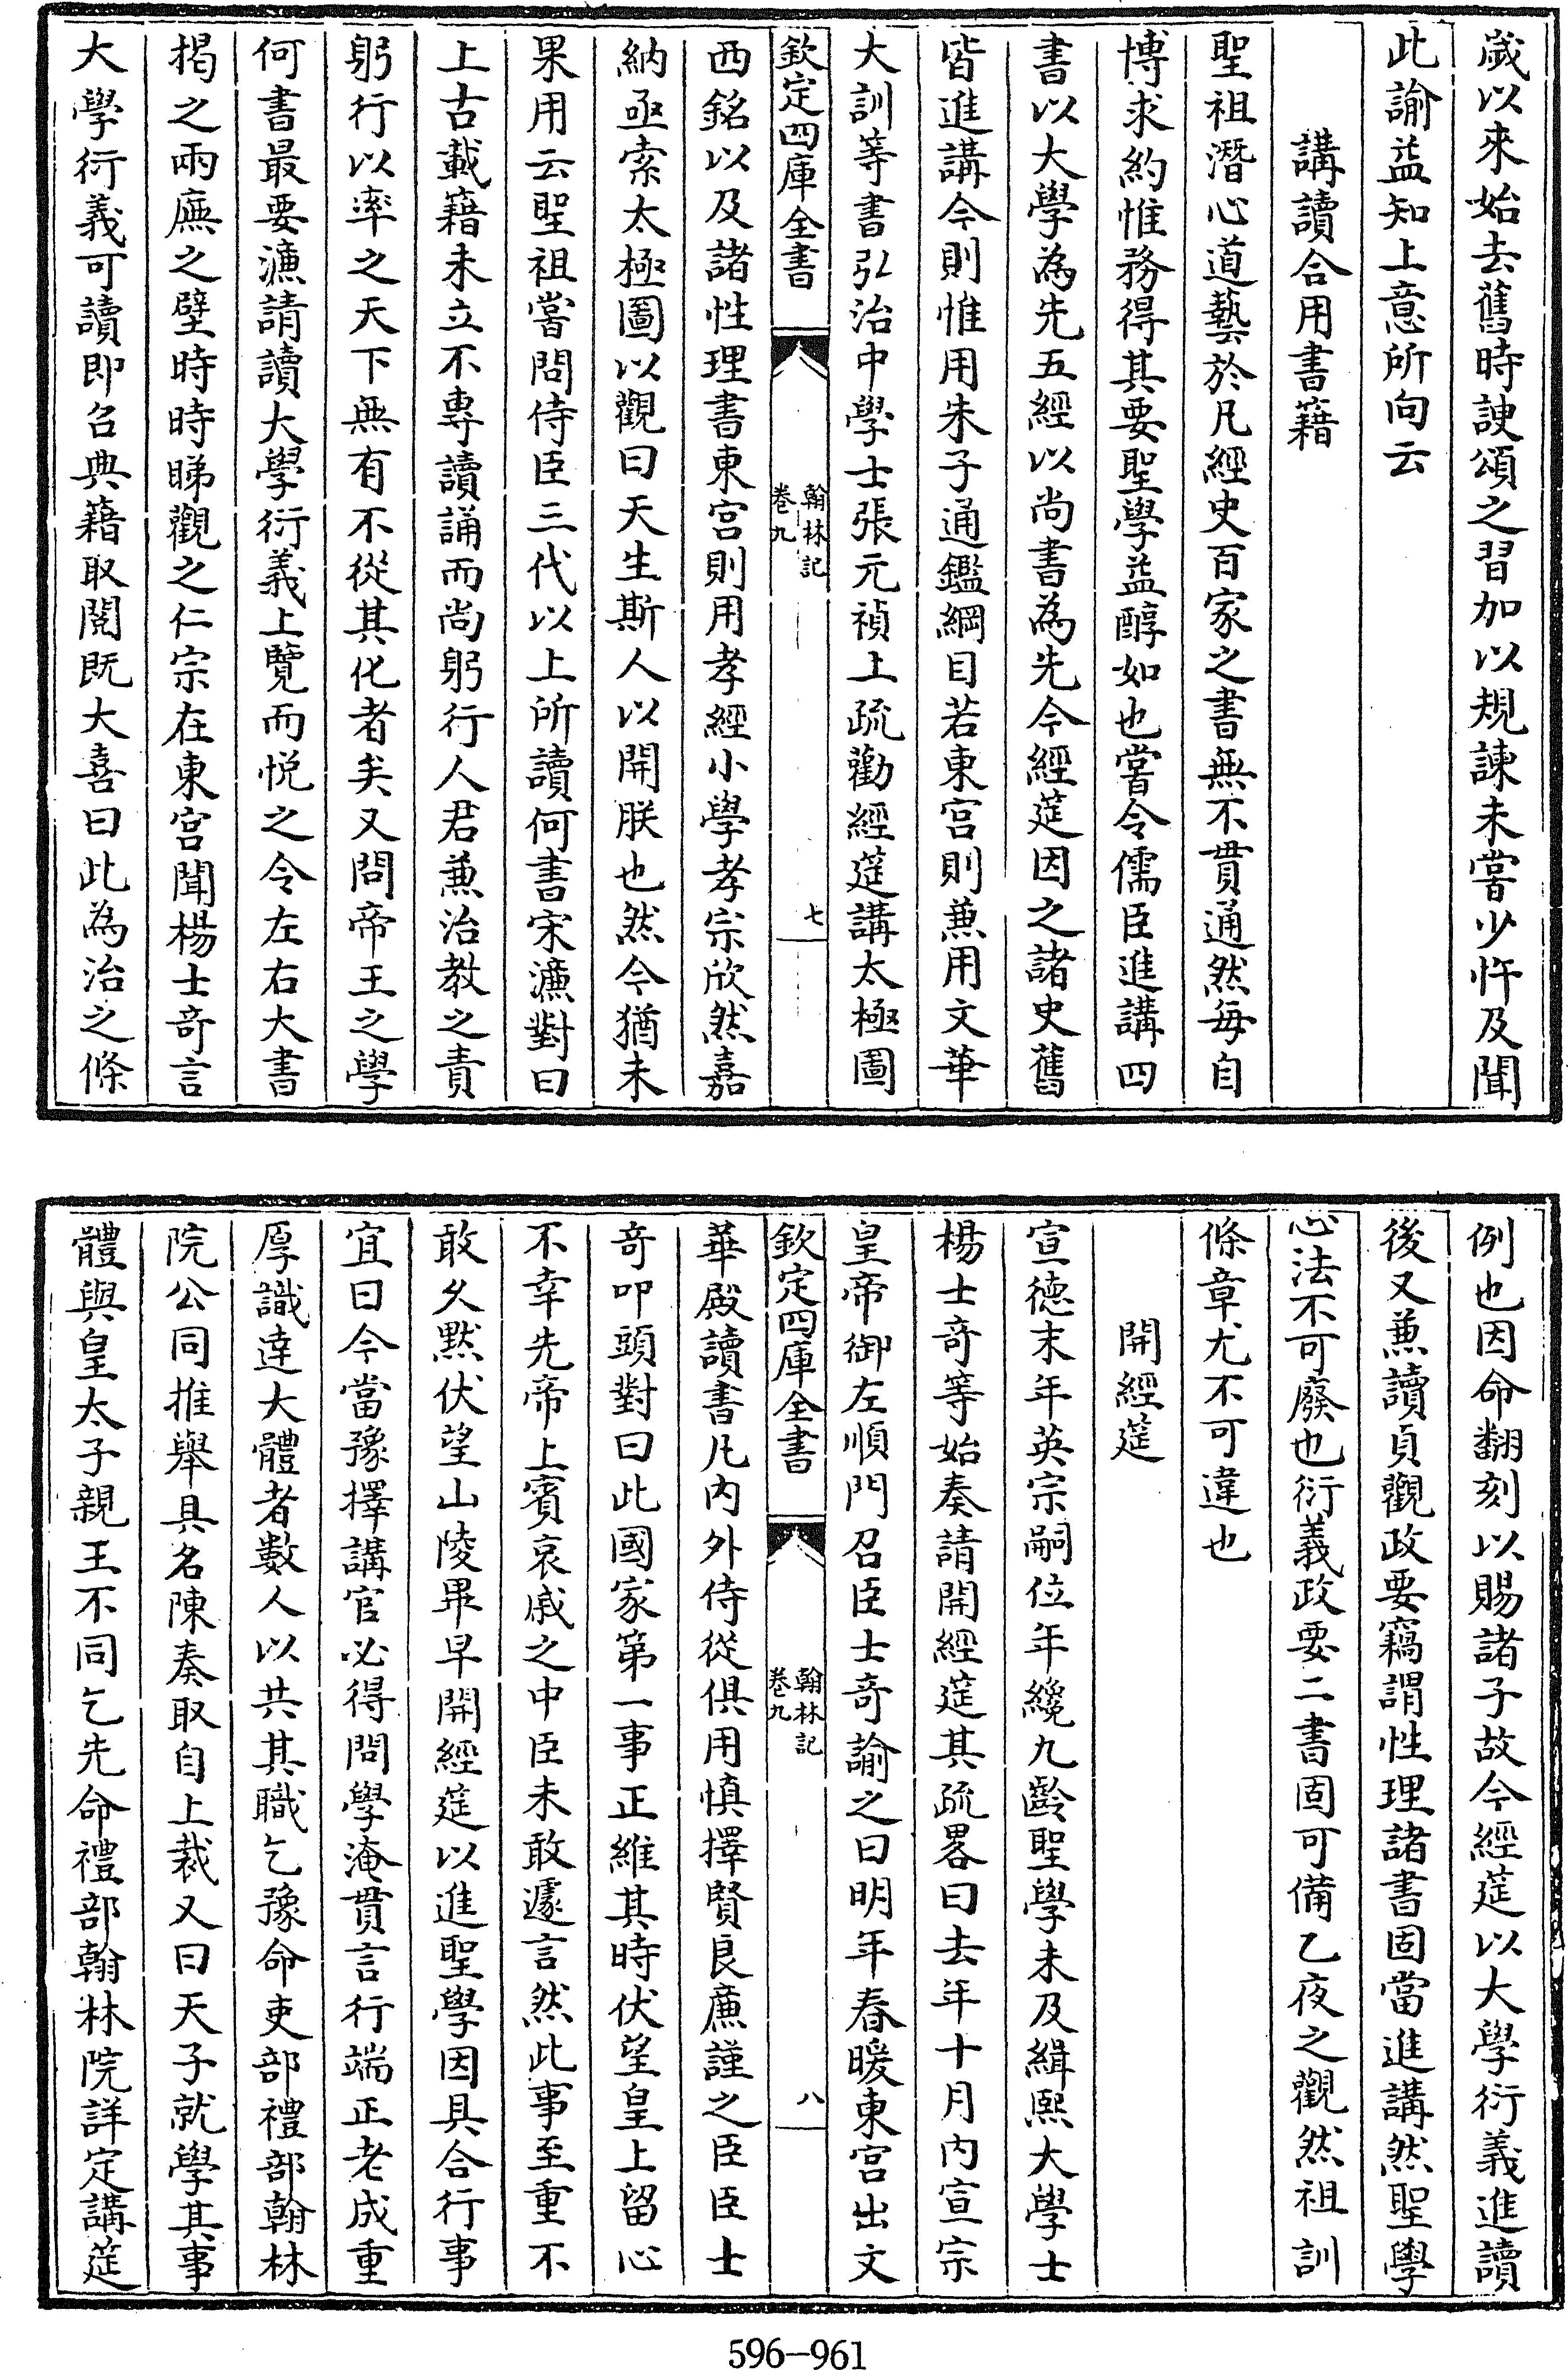 歲以來始去舊時諛頌之習加以規諫未嘗少忤及聞
此諭益知上意所向云
講讀合用書籍
聖祖潛心道藝於凡經史百家之書無不貫通然每自
博求約惟務得其要聖學益醇如也嘗令儒臣進講四
書以大學為先五經以尚書為先今經筵因之諸史舊
皆進講今則惟用朱子通鑑綱目若東宮則兼用文華
大訓等書弘治中學士張元禎上疏勸經筵講太極圖
欽定四庫全書
翰林記
卷九
七
西銘以及諸性理書東宮則用孝經小學孝宗欣然嘉
納亟索太極圖以觀曰天生斯人以開朕也然今猶未
果用云聖祖嘗問侍臣三代以上所讀何書宋濂對曰
上古載籍未立不專讀誦而尚躬行人君兼治教之責
躬行以率之天下無有不從其化者矣又問帝王之學
何書最要濂請讀大學衍義上覽而悅之令左右大書
揭之兩廡之壁時時睇觀之仁宗在東宮聞楊士奇言
大學衍義可讀即召典籍取閱既大喜曰此為治之條
例也因命翻刻以賜諸子故今經筵以大學衍義進讀
後又兼讀貞觀政要竊謂性理諸書固當進講然聖學
心法不可廢也衍義政要二書固可備乙夜之觀然祖訓
條章尤不可違也
開經筵
宣德末年英宗嗣位年纔九齡聖學未及緝熙大學士
楊士奇等始奏請開經筵其疏畧曰去年十月內宣宗
皇帝御左順門召臣士奇諭之曰明年春暖東宮出文
欽定四庫全書
翰林記
卷九
八
華殿讀書凡內外侍從俱用慎擇賢良廉謹之臣臣士
奇叩頭對曰此國家第一事正維其時伏望皇上留心
不幸先帝上賓哀戚之中臣未敢遽言然此事至重不
敢久默伏望山陵畢早開經筵以進聖學因具合行事
宜曰今當豫擇講官必得問學淹貫言行端正老成重
厚識達大體者數人以共其職乞豫命吏部禮部翰林
院公同推舉具名陳奏取自上裁又曰天子就學其事
體與皇太子親王不同乞先命禮部翰林院詳定講筵
596-961